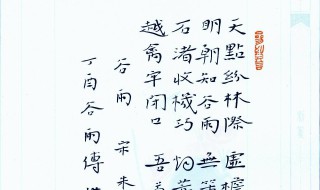 天點紛林際 虛檐
明朝知谷雨 無策
石渚收機巧 烟
越禽牢閉口 吾
谷雨 宋 朱
丁酉谷雨傅